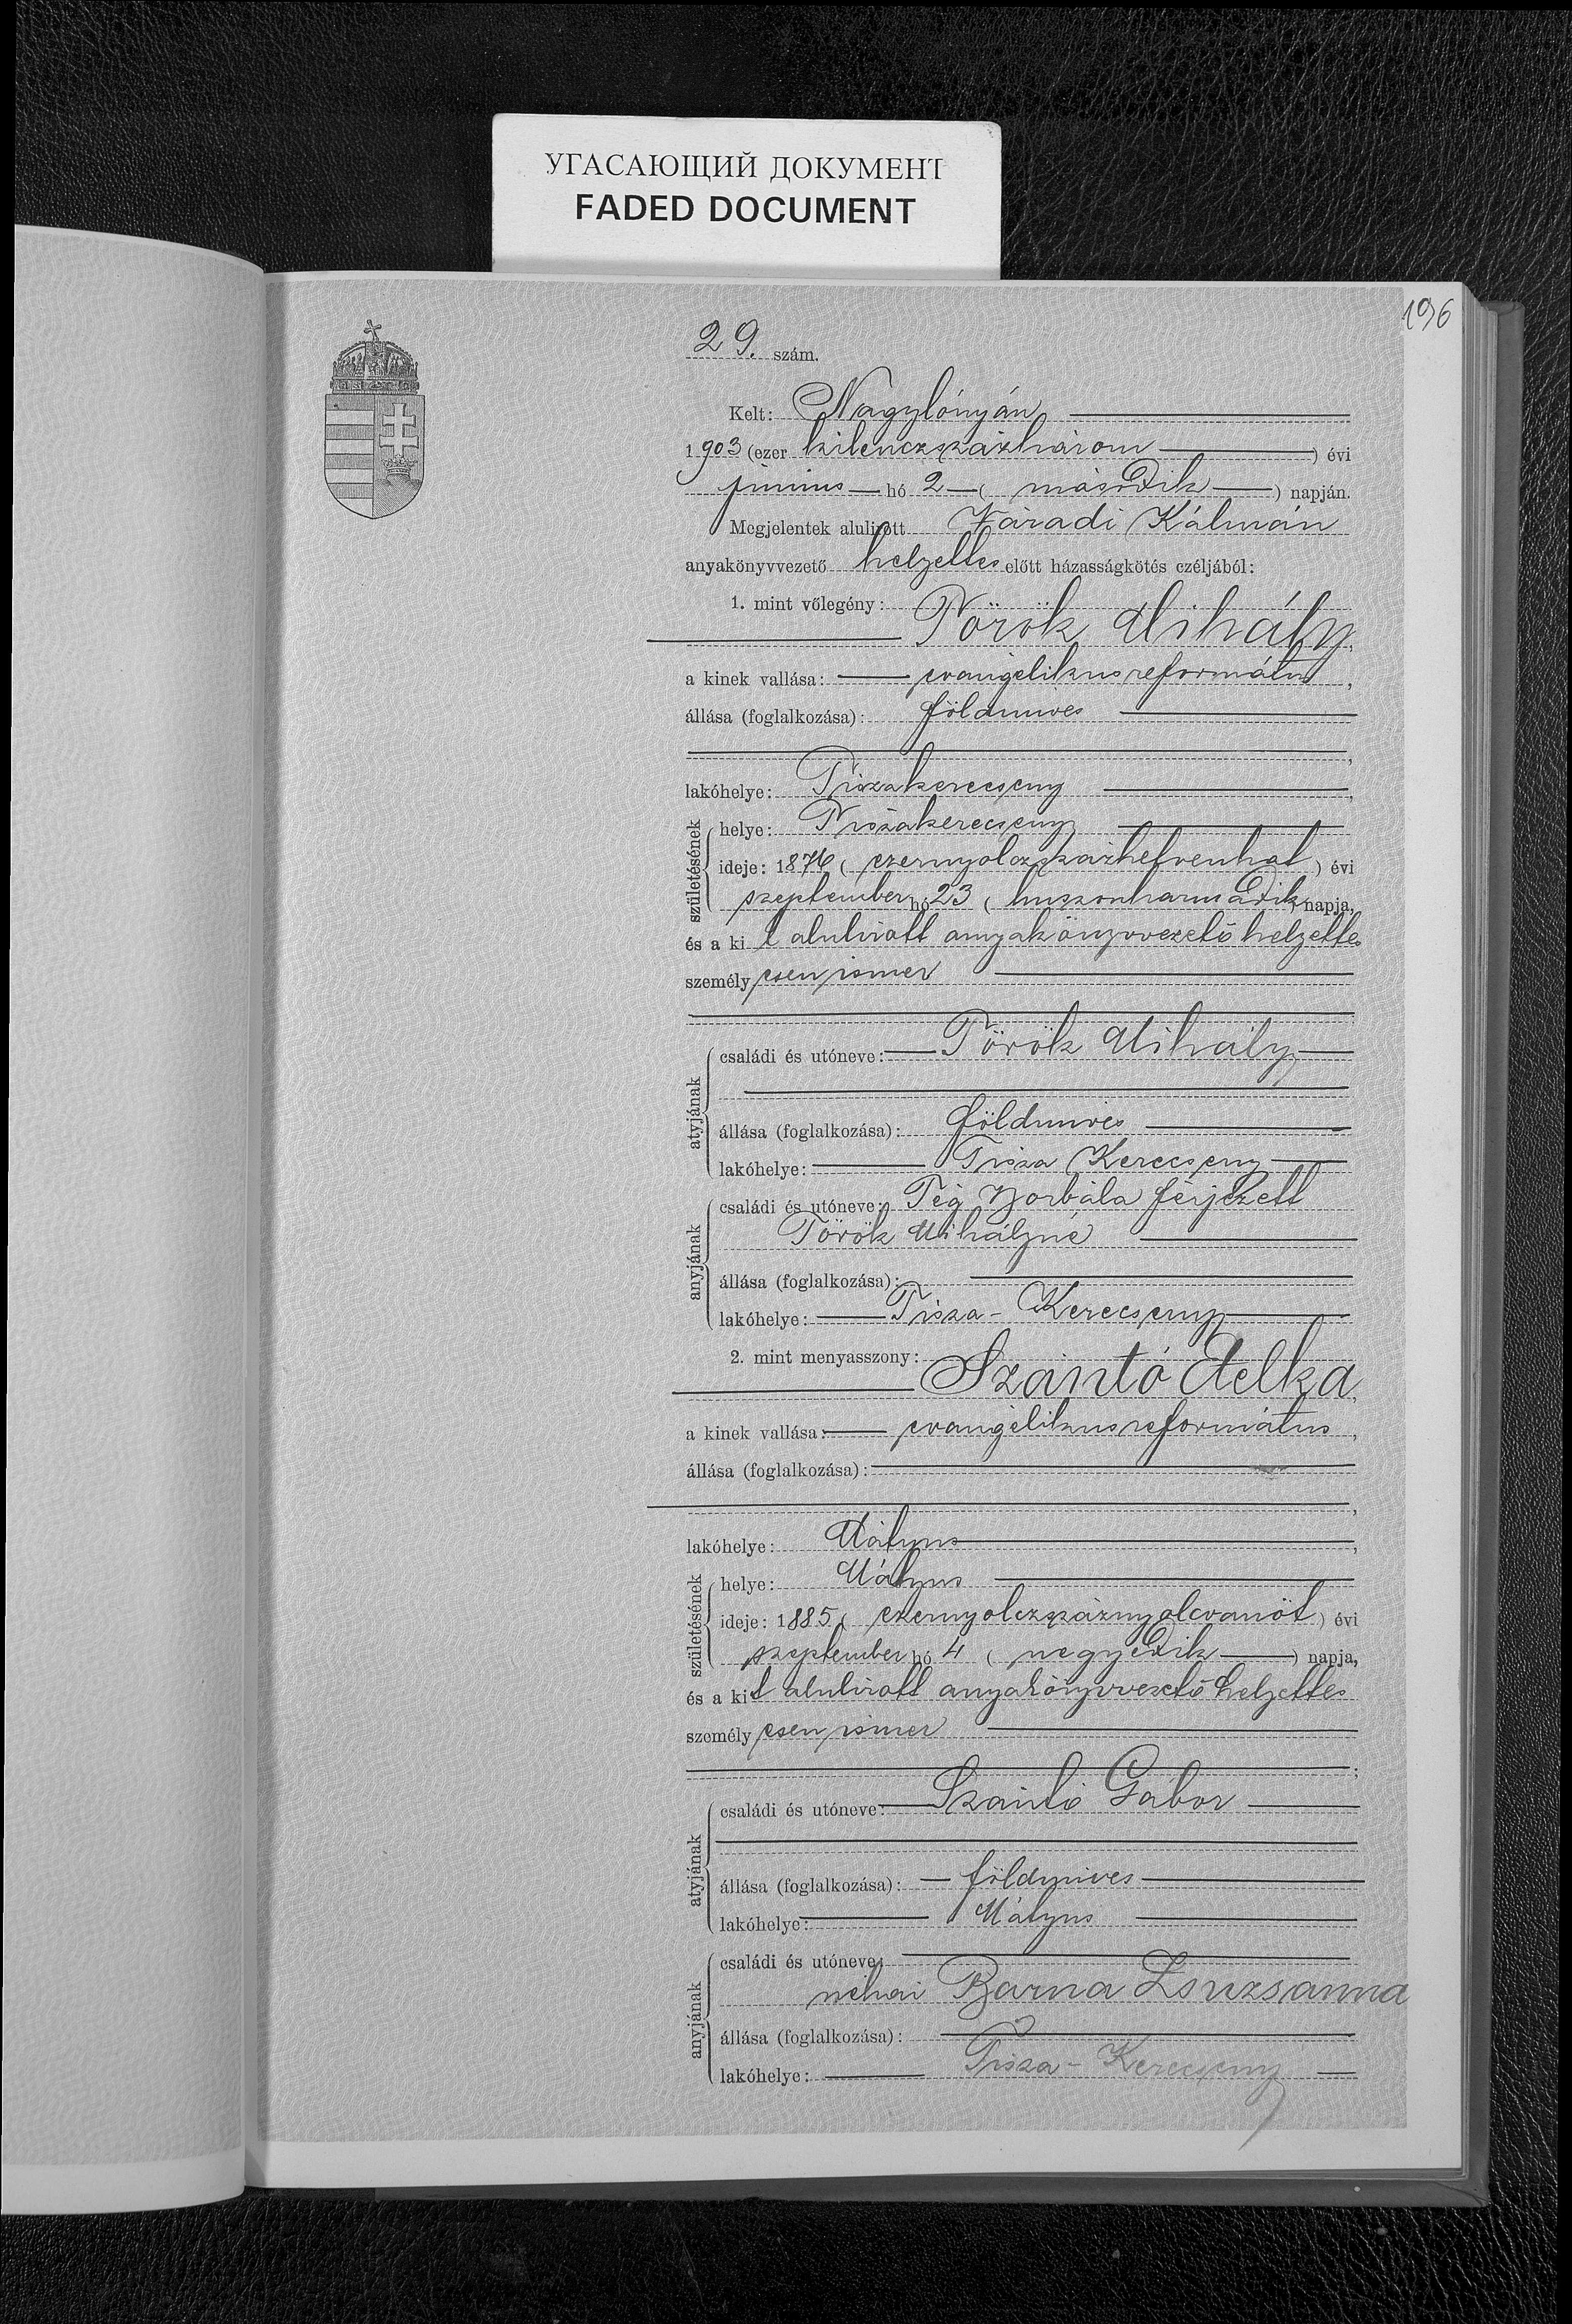 УГАСАЮЩИЙ ДОКУМЕНТ
FADED DOCUMENT
196
29. szám.
Kelt: Nagylónyán
1903 (ezer kilenczszázhárom) évi
junius hó 2 (második) napján.
Megjelentek alulírott Váradi Kálmán
anyakönyvvezető helyettes előtt házasságkötés czéljából:
1. mint vőlegény:
Török Mihály,
a kinek vallása: evangelikus református,
állása (foglalkozása): földmives
,
lakóhelye: Tiszakerecseny,
születésének
helye: Tiszakerecseny
ideje: 1876 (ezernyolczszázhetvenhat) évi
szeptember hó 23 (huszonharmadik) napja,
és a kit alulirott anyakönyvvezető helyettes
személyesen ismer
;
atyjának
családi és utóneve: Török Mihály
állása (foglalkozása): földmives
lakóhelye: Tisza Kerecseny
anyjának
családi és utóneve: Tég Borbála férjezett
Török Mihályné
állása (foglalkozása):
lakóhelye: Tisza-Kerecseny
2. mint menyasszony:
Szántó Etelka,
a kinek vallása: evangélikus református,
állása (foglalkozása):
,
lakóhelye: Mátyus,
születésének
helye: Mátyus
ideje: 1885 (ezernyolczszáznyolcvanöt) évi
szeptember hó 4 (negyedik) napja,
és a kit alulirott anyakönyvvezető helyettes
személyesen ismer
;
atyjának
családi és utóneve: Szántó Gábor
állása (foglalkozása): földmives
lakóhelye: Mátyus
anyjának
családi és utóneve:
néhai Barna Zsuzsanna
állása (foglalkozása):
lakóhelye: Tisza-Kerecseny